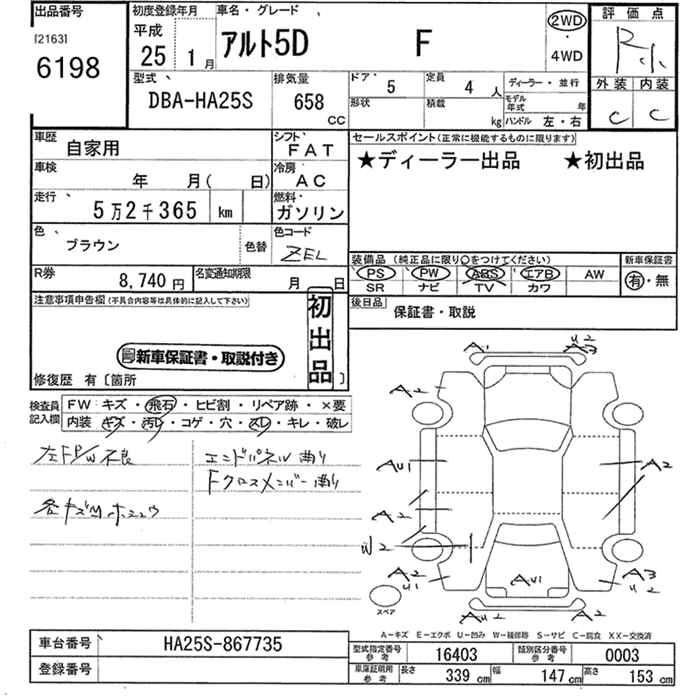 出品番号
[2163]
6198
初度登録年月
平成
25 1月
車名・グレード
アルト5D F
2WD
・
4WD
評価点
R小
外装 内装
C C
型式
DBA-HA25S
排気量
658
CC
ドア 5
定員 4 人
ディーラー・並行
形状
積載 kg
モデル年式 年
ハンドル 左・右
車歴 自家用
シフト FAT
セールスポイント(正常に機能するものに限ります)
★ディーラー出品 ★初出品
車検 年 月( 日)
冷房 AC
走行 5万2千365 km
燃料 ガソリン
色 ブラウン
色替
色コード ZEL
装備品(純正品に限り○をつけてください)
新車保証書
PS PW ABS エアB AW
有・無
SR ナビ TV カワ
R券 8,740 円
名変通知期限 月 日
後日品 保証書・取説
注意事項申告欄(不具合内容等は具体的に記入して下さい)
初出品
新車保証書・取説付き
修復歴 有〔箇所 〕
検査員記入欄
FW キズ・飛石・ヒビ割・リペア跡・×要
内装 キズ・汚れ・コゲ・穴・スレ・キレ・破レ
左FP/W不良
エンドパネル曲り
Fクロスメンバー曲り
A1
A2
A2
AU1
A2
A2
W2
A2
U1
AU1
A3
U2
AU2
A2
スペア
A-キズ E-エクボ U-凹み W-補修跡 S-サビ C-腐食 XX-交換済
車台番号 HA25S-867735
登録番号
型式指定番号 参考 16403
類別区分番号 参考 0003
車庫証明用 参考
長さ 339 cm 幅 147 cm 高さ 153 cm